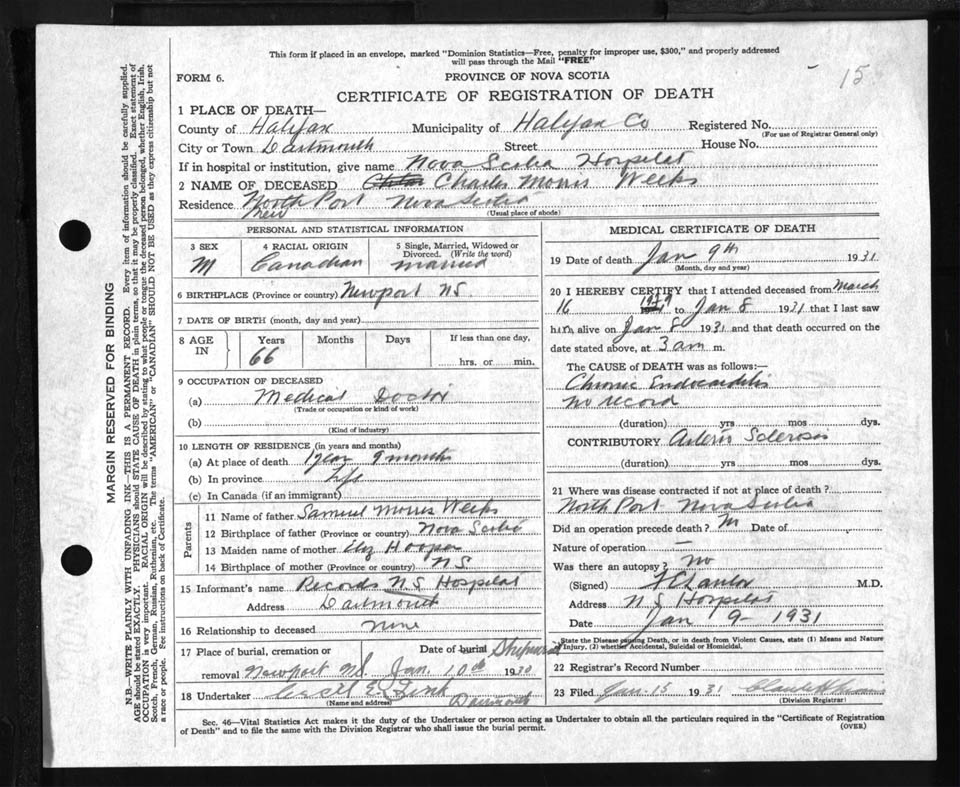 This form if placed in an envelope, marked "Dominion Statistics—Free, penalty for improper use, $300," and properly addressed
will pass through the Mail "FREE"
FORM 6.
PROVINCE OF NOVA SCOTIA
15
CERTIFICATE OF REGISTRATION OF DEATH
1 PLACE OF DEATH—
County of Halifax Municipality of Halifax Co Registered No.
(For use of Registrar General only)
City or Town Dartmouth Street House No.
If in hospital or institution, give name Nova Scotia Hospital
2 NAME OF DECEASED Charles Morris Weeks
Residence North Port Nova Scotia
New
(Usual place of abode)
PERSONAL AND STATISTICAL INFORMATION
3 SEX
M
4 RACIAL ORIGIN
Canadian
5 Single, Married, Widowed or
Divorced. (Write the word)
married
6 BIRTHPLACE (Province or country) Newport N.S.
7 DATE OF BIRTH (month, day and year)
8 AGE IN
Years Months Days If less than one day,
66 hrs. or min.
9 OCCUPATION OF DECEASED
(a) Medical Doctor
(Trade or occupation or kind of work)
(b)
(Kind of industry)
10 LENGTH OF RESIDENCE (in years and months)
(a) At place of death 1 year 9 months
(b) In province life
(c) In Canada (if an immigrant)
Parents
11 Name of father Samuel Morris Weeks
12 Birthplace of father (Province or country) Nova Scotia
13 Maiden name of mother Eliz Hooper
14 Birthplace of mother (Province or country) N.S.
15 Informant's name Records N.S. Hospital
Address Dartmouth
16 Relationship to deceased none
17 Place of burial, cremation or Date of burial Shipment
removal Newport N.S. Jan. 10th 1930
18 Undertaker
(Name and address)
Dartmouth
MEDICAL CERTIFICATE OF DEATH
19 Date of death Jan 9th 1931
(Month, day and year)
20 I HEREBY CERTIFY that I attended deceased from March
16 1929 to Jan 8 1931 that I last saw
him alive on Jan 8 1931 and that death occurred on the
date stated above, at 3 am m.
The CAUSE of DEATH was as follows:—
Chronic Endocarditis
no record
(duration) yrs mos dys.
CONTRIBUTORY Arterio Sclerosis
(duration) yrs mos dys.
21 Where was disease contracted if not at place of death?
North Port Nova Scotia
Did an operation precede death? Date of
Nature of operation —
Was there an autopsy? no
(Signed) M.D.
Address N S Hospital
Date Jan 9- 1931
State the Disease causing Death, or in death from Violent Causes, state (1) Means and Nature
of Injury, (2) whether Accidental, Suicidal or Homicidal.
22 Registrar's Record Number
23 Filed Jan. 15 1931
(Division Registrar)
Sec. 46—Vital Statistics Act makes it the duty of the Undertaker or person acting as Undertaker to obtain all the particulars required in the "Certificate of Registration
of Death" and to file the same with the Division Registrar who shall issue the burial permit.
(OVER)
MARGIN RESERVED FOR BINDING
N.B.—WRITE PLAINLY WITH UNFADING INK—THIS IS A PERMANENT RECORD. Every item of information should be carefully supplied.
AGE should be stated EXACTLY. PHYSICIANS should STATE CAUSE OF DEATH in plain terms, so that it may be properly classified. Exact statement of
OCCUPATION is very important. RACIAL ORIGIN will be described by stating to what people or tongue the deceased person belonged, whether English, Irish,
Scotch, French, German, Russian, Ruthenian, etc. The terms "AMERICAN" or "CANADIAN" SHOULD NOT BE USED as they express citizenship but not
a race or people. See instructions on back of Certificate.